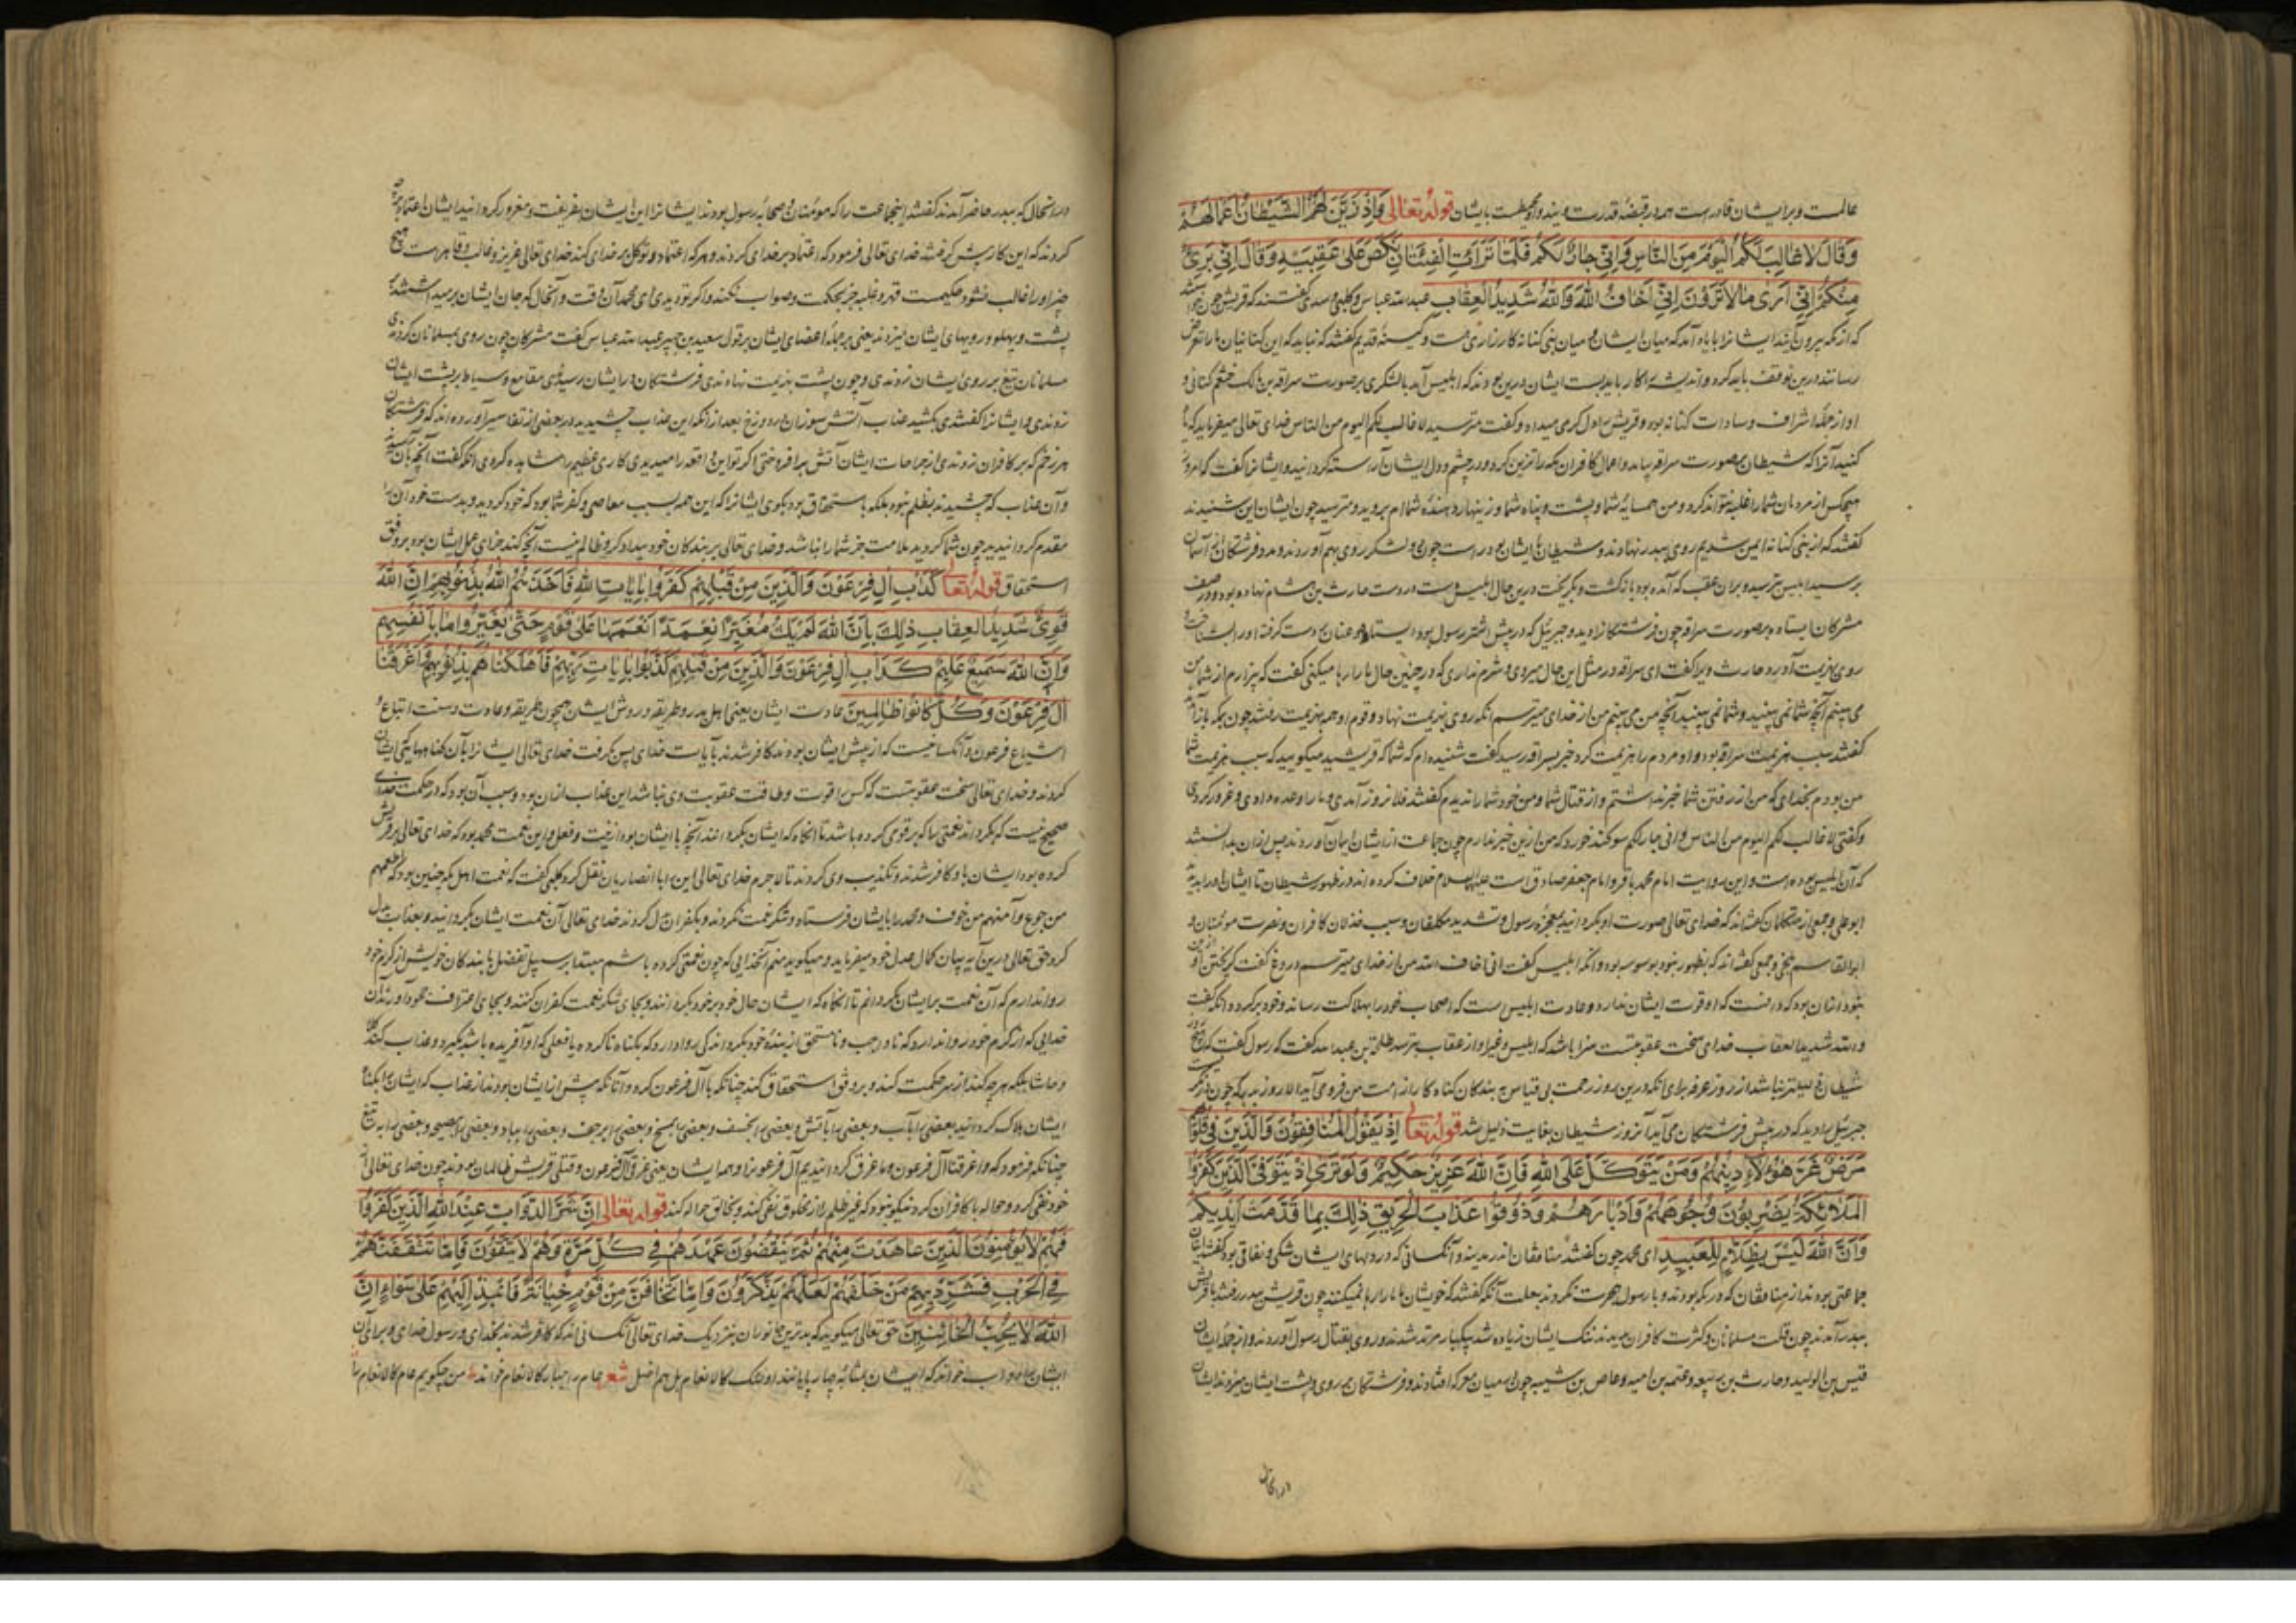 عالمست و برایشان قادرست همه در قبضه قدرت ویند و او محیطست بایشان قوله تعالی وَاِذْ زَیَّنَ لَهُمُ الشَّیْطانُ اَعْمالَهُمْ
وَقالَ لا غالِبَ لَکُمُ الْیَوْمَ مِنَ النّاسِ وَاِنّی جارٌ لَکُمْ فَلَمّا تَرآءَتِ الْفِئَتانِ نَکَصَ عَلی عَقِبَیْهِ وَقالَ اِنّی بَریٌ
مِنْکُمْ اِنّی اَری مالا تَرَوْنَ اِنّی اَخافُ اللهَ وَاللهُ شَدیدُ الْعِقابِ عبدالله عباس و کلبی و سدی گفتند که قریش چون
که از مکه بیرون آیند ایشانرا با یاد آمد که میان ایشان و میان بنی کنانه کارزاری هست و کینه قدیم گفتند که نباید که این کنانیان ما را تعرض
رسانند درین توقف باید کرد و اندیشه این کار باید بست ایشان درین بودند که ابلیس آمد با لشکری بر صورت سراقة بن مالک
او از جمله اشراف و سادات کنانه بود و قریش را دل گرمی میداد و گفت مترسید لا غالب لکم الیوم من الناس خدای تعالی میفرماید که یاد
کنید آنرا که شیطان بصورت سراقه بیامد و اعمال کافران مکه را تزیین کرد و در چشم و دل ایشان آراسته گردانید و ایشانرا گفت که امروز
هیچکس از مردمان شما را غلبه نتواند کرد و من همسایه شما و پشت و پناه شما و زینهار دهنده شما ام بروید و مترسید چون ایشان این شنیدند
گفتند که از بنی کنانه ایمن شدیم روی ببدر نهادند و شیطان با ایشان بود راست چون دو لشکر روی بهم آوردند و مدد فرشتگان از آسمان
برسید ابلیس بترسید و بران عقب که آمده بود بازگشت و بگریخت درین حال ابلیس دست در دست حارث بن هشام نهاده بود و در صف
مشرکان ایستاده بصورت سراقه چون فرشتگانرا دید و جبرئیل که در پیش اشتر رسول بود ایستاده و عنان بدست گرفته او را بشناخت
روی بهزیمت آورد حارث ویرا گفت ای سراقه در مثل این حال میروی و شرم نداری که در چنین حال ما را رها میکنی گفت که بیزارم از شما من
می بینم آنچه شما نمی بینید و شما نمی بینید آنچه من می بینم من از خدای میترسم آنگه روی بهزیمت نهاد و قوم او همه بهزیمت رفتند چون بمکه باز آمدند
گفتند سبب هزیمت سراقه بود و او مردم را هزیمت کرد خبر بسراقه رسید گفت شنیده ام که شما که قریشید میگویید که سبب هزیمت شما
من بودم بخدای که من از رفتن شما خبر نداشتم و از قتال شما و من خود شما را ندیدم گفتند فلان روز آمدی و ما را وعده دادی و غرور کردی
و گفتی لا غالب لکم الیوم من الناس و انی جار لکم سوگند خورد که من ازین خبر ندارم چون جماعت از ایشان ایمان آوردند پس ازان بدانستند
که آن ابلیس بوده است و این روایت امام محمد باقر و امام جعفر صادق است علیهما السلام خلاف کرده اند در ظهور شیطان تا ایشان او را بدیدند
ابو علی و جمعی از متکلمان گفته اند که خدای تعالی صورت او بگردانید بمعجزه رسول و تشدید مکلفان و سبب خذلان کافران و نصرت مومنان و
ابو القاسم بلخی و جمعی گفته اند که بظهور نبود بوسوسه بود و آنکه ابلیس گفت انی اخاف الله من از خدای میترسم دروغ گفت
نبود ازان بود که دانست که او قوت ایشان ندارد و عادت ابلیس است که اصحاب خود را بهلاکت رساند و خود برگردد و آنگه گفت
والله شدید العقاب خدای سخت عقوبتست سزا باشد که ابلیس و غیر او از عقاب بترسد طلحة بن عبیدالله گفت که رسول گفت که هیچ روز
شیطان ذلیلتر نباشد از روز عرفه برای آنکه درین روز رحمت بی قیاس بر بندگان گناه کار از رحمت من فرو می آید الا روز بدر که چون
جبرئیل را دید که در پیش فرشتگان می آید آنروز شیطان بغایت ذلیل شد قوله تعا اِذْ یَقُولُ الْمُنافِقُونَ وَالَّذینَ فی قُلُوبِهِمْ
مَرَضٌ غَرَّ هٰؤُلاءِ دینُهُمْ وَمَنْ یَتَوَکَّلْ عَلَی اللهِ فَاِنَّ اللهَ عَزیزٌ حَکیمٌ وَلَوْ تَری اِذْ یَتَوَفَّی الَّذینَ کَفَرُوا
الْمَلائِکَةُ یَضْرِبُونَ وُجُوهَهُمْ وَاَدْبارَهُمْ وَذُوقُوا عَذابَ الْحَریقِ ذٰلِکَ بِما قَدَّمَتْ اَیْدیکُمْ
وَاَنَّ اللهَ لَیْسَ بِظَلّامٍ لِلْعَبیدِ ای محمد چون گفتند منافقان اندر مدینه و آنکسانی که در دلهای ایشان شکی و نفاقی بود
جماعتی بودند از منافقان که در مکه بودند و با رسول هجرت نکردند بعلت آنکه گفتند که خویشان ما ما را رها نمیکنند چون قریش ببدر رفتند با قریش
ببدر آمدند چون قلت مسلمانان و کثرت کافران بدیدند شک ایشان زیاده شد بیکبار مرتد شدند و روی بقتال رسول آوردند و از جمله ایشان
قیس بن الولید و حارث بن ربیعه و عتبه بن امیه و عاص بن شیبه چون بمیان معرکه افتادند و فرشتگان بر روی و پشت ایشان میزدند ایشان
در انحال
در انحال که ببدر حاضر آمدند گفتند اینجماعت را که مومنان و صحابه رسول بودند ایشانرا این ایشان بفریفت و مغرور گردانید ایشان اعتماد بر آن
کردند که این کار پیش گرفتند خدای تعالی فرمود که اعتماد بر خدای کردند و هر که اعتماد و توکل بر خدای کند خدای تعالی عزیز و غالب و قاهرست هیچ
چیز او را غالب نشود حکیمست قهر و غلبه جز بحکمت و صواب نکند و اگر تو دیدی ای محمد آن وقت و آنحال که جان ایشان
پشت و پهلو و رویهای ایشان میزدند یعنی بر جمله اعضای ایشان بر قول سعید بن جبیر عبدالله عباس گفت مشرکان چون روی بمسلمانان کردندی
مسلمانان تیغ بر روی ایشان زدندی و چون پشت بهزیمت نهادندی فرشتگان در ایشان رسیدندی مقامع و سیاط بر پشت ایشان
زدندی و ایشانرا گفتندی بچشید عذاب آتش سوزان در دوزخ بعد ازانکه این عذاب چشیدید در بعضی از تفاسیر آورده اند که فرشتگان
هر زخم که بر کافران زدندی از جراحات ایشان آتش برافروختی اگر تو این واقعه را میدیدی کاری عظیم را مشاهده کردی آنگه گفت
و آن عذاب که چشیدند بظلم نبود بلکه باستحقاق بود بگوی ایشانرا که این همه بسبب معاصی و کفر شما بود که خود کردید و بدست خود آنرا
مقدم گردانیدید چون شما کردید ملامت جز شما را نباشد و خدای تعالی بر بندگان خود بیدادگر و ظالم نیست آنچه کند جزای عمل ایشان بود بر وفق
استحقاق قوله تعا کَدَأْبِ آلِ فِرْعَوْنَ وَالَّذینَ مِنْ قَبْلِهِمْ کَفَرُوا بِآیاتِ اللهِ فَاَخَذَهُمُ اللهُ بِذُنُوبِهِمْ اِنَّ اللهَ
قَوِیٌّ شَدیدُ الْعِقابِ ذٰلِکَ بِاَنَّ اللهَ لَمْ یَکُ مُغَیِّرًا نِعْمَةً اَنْعَمَها عَلی قَوْمٍ حَتّی یُغَیِّرُوا ما بِاَنْفُسِهِمْ
وَاَنَّ اللهَ سَمیعٌ عَلیمٌ کَدَأْبِ آلِ فِرْعَوْنَ وَالَّذینَ مِنْ قَبْلِهِمْ کَذَّبُوا بِآیاتِ رَبِّهِمْ فَاَهْلَکْناهُمْ بِذُنُوبِهِمْ وَاَغْرَقْنا
آلَ فِرْعَوْنَ وَکُلٌّ کانُوا ظالِمینَ عادت ایشان یعنی اهل بدر و طریقه و روش ایشان همچون طریقه و عادت و سنت اتباع و
اشیاع فرعون و آنکسانیست که از پیش ایشان بودند کافر شدند بآیات خدای پس بگرفت خدای تعالی ایشانرا بآن گناهها که ایشان
کردند و خدای تعالی سخت عقوبتست که کس را قوت و طاقت عقوبت وی نباشد این عذاب ازان بود و سبب آن بود که در حکمت خدای
صحیح نیست که بگرداند نعمتی را که بر قومی کرده باشد تا آنگاه که ایشان بگردانند آنچه با ایشان بود از نیت و فعل و این نعمت محمد بود که خدای تعالی بر قریش
کرده بود ایشان باو کافر شدند و تکذیب وی کردند تا لاجرم خدای تعالی این را با انصاریان نقل کرد کلبی گفت که نعمت اهل مکه چنین بود که اطعمهم
من جوع و آمنهم من خوف و محمد را بایشان فرستاد و شکر نعمت نکردند و بکفران بدل کردند خدای تعالی آن نعمت ایشان بگردانید و بعذاب بدل
کرد حق تعالی درین آیه بیان کمال عدل خود میفرماید و میگوید منم آنخدایی که چون نعمتی کرده باشم مبتدا بر سبیل تفضل با بندگان خویش از کرم خود
روا ندارم که آن نعمت بر ایشان بگردانم تا آنگاه که ایشان حال خود بر خود بگردانند و بجای شکر نعمت کفران کنند و بجای اعتراف جحود آورند آن
خدایی که از کرم خود روا ندارد که نا واجب و نا مستحق از بنده خود بگرداند کی روا دارد که بگناه ناکرده یا فعلی که او آفریده باشد بگیرد و عذاب کند
و حاشا بلکه هر چه کند از سر حکمت کند و بر وفق استحقاق کند چنانکه با آل فرعون کرد و آنانکه پیش از ایشان بودند از عذاب که ایشانرا بگناه
ایشان هلاک گردانید بعضی را بآب و بعضی را بآتش و بعضی را بخسف و بعضی را بمسخ و بعضی را برجف و بعضی را بباد و بعضی را بصیحه و بعضی را به تیغ
چنانکه فرمود که و اغرقنا آل فرعون و ما غرق گردانیدیم آل فرعونرا و همه ایشان یعنی غرقی آل فرعون و قتلی قریش ظالمان بودند چون خدای تعالی از
خود نفی کرد و حواله با کافران کرد نیکو نبود که غیر ظلم را از مخلوق نفی کند و بخالق حواله کند قوله تعالی اِنَّ شَرَّ الدَّوابِّ عِنْدَ اللهِ الَّذینَ کَفَرُوا
فَهُمْ لا یُؤْمِنُونَ الَّذینَ عاهَدْتَ مِنْهُمْ ثُمَّ یَنْقُضُونَ عَهْدَهُمْ فی کُلِّ مَرَّةٍ وَهُمْ لا یَتَّقُونَ فَاِمّا تَثْقَفَنَّهُمْ
فِی الْحَرْبِ فَشَرِّدْ بِهِمْ مَنْ خَلْفَهُمْ لَعَلَّهُمْ یَذَّکَّرُونَ وَاِمّا تَخافَنَّ مِنْ قَوْمٍ خِیانَةً فَانْبِذْ اِلَیْهِمْ عَلی سَواءٍ اِنَّ
اللهَ لا یُحِبُّ الْخائِنینَ حق تعالی میگوید که بدترین جانوران بنزدیک خدای تعالی آنکسانی اند که کافر شدند بخدای و رسول خدای و برای آن
ایشانرا دواب خواند که ایشان بمثابه چارپایانند اولئک کالانعام بل هم اضل شعر عام را جبار کالانعام خواند من چگویم عام کالانعام را